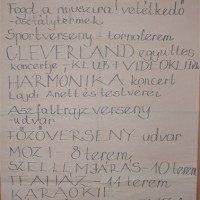 Fogd a műsorra! vetélkedő
-osztálytermek
Sportverseny - tornaterem
CLEVERLAND együttes
koncertje - KLUB + VIDEOKLIPEK
HARMONIKA koncert
Lajdi Anett és testvérei
Aszfaltrajzverseny
-udvar
FŐZŐVERSENY - udvar
MOZI - 8 terem
SZELLEMJÁRÁS - 10 terem
TEAHÁZ - 14 terem
KARAOKIE